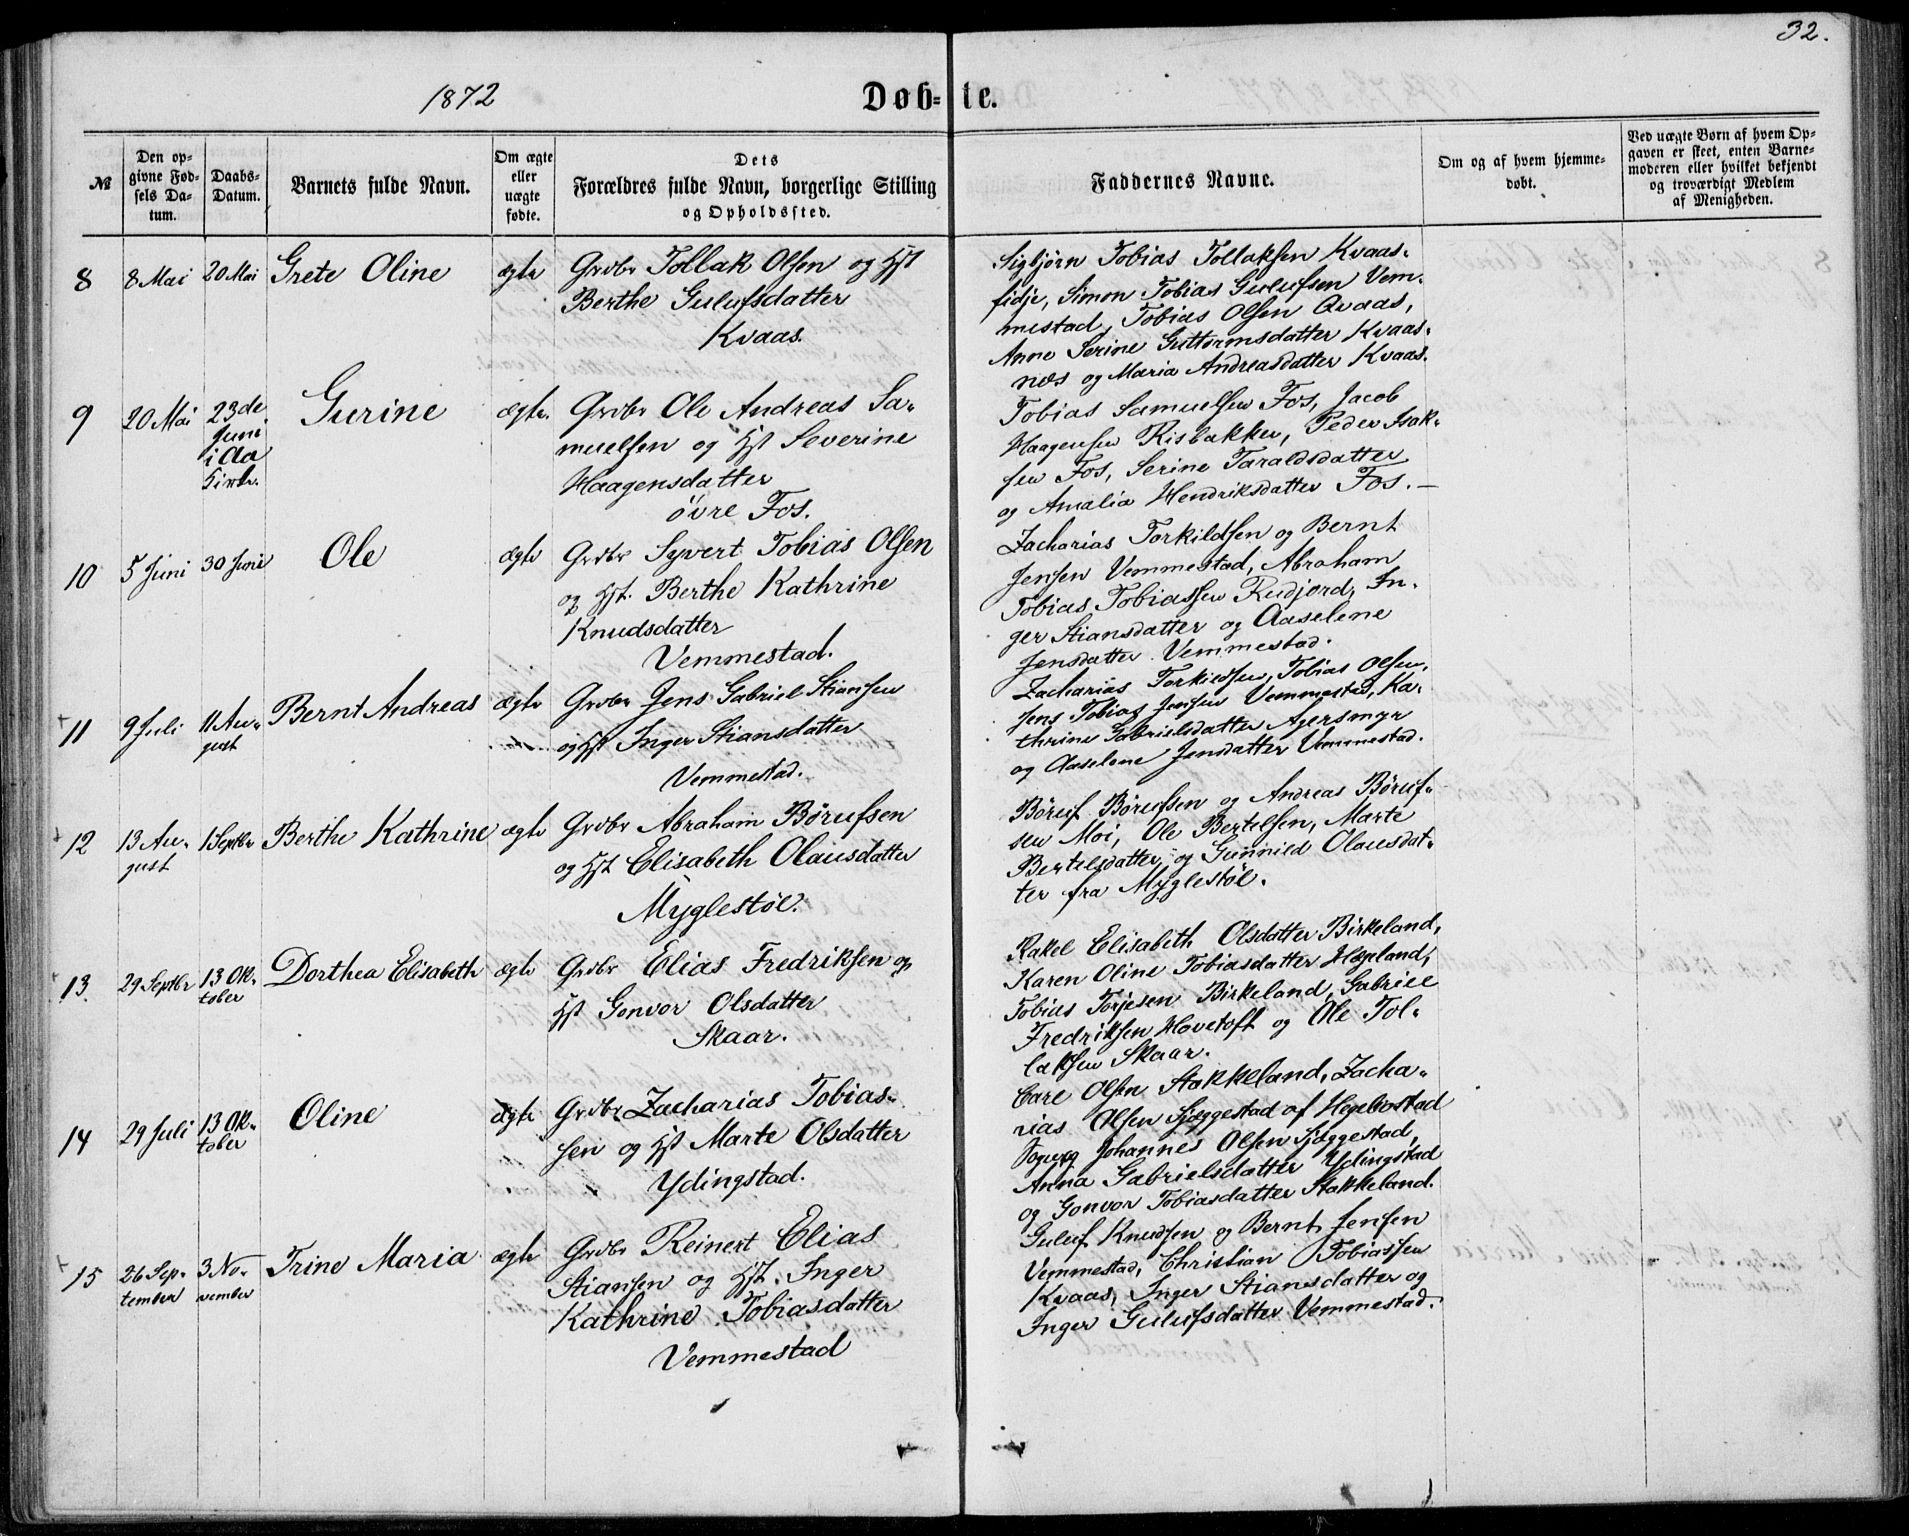 32.
1872
Døb-te.
№
Den op-
givne Fød-
sels Da-
tum.
Daabs-
Datum.
Barnets fulde Navn.
Om ægte
eller
uægte
fødte.
Dets
Forældres fulde Navn, borgerlige Stilling
og Opholdssted.
Faddernes Navne.
Om og af hvem hjemme-
døbt.
Ved uægte Børn af hvem Op-
gaven er skeet, enten Barne-
moderen eller hvilket bekjendt
og troværdigt Medlem
af Menigheden.
8
8 Mai
20 Mai
Grete Oline
ægte
Grdbr Tollak Olsen og Hst
Berthe Gulufsdatter
Kvaas.
Sigbjørn Tobias Tollaksen Kvaas-
fidje, Simon Tobias Gulufsen Vem-
mestad, Tobias Olsen Qvaas,
Anne Serine Guttormsdatter Kvaas-
nes og Maria Andreasdatter Kvaas.
9
20 Mai
23de
Juni
i Aa
Kirke.
Gurine
ægte.
Grdbr Ole Andreas Sa-
muelsen og Hst Severine
Haagensdatter
øvre Fos.
Tobias Samuelsen Fos, Jacob
Haagensen Risbakken, Peder Isak-
sen Fos, Serine Taraldsdatter
og Amalia Hendriksdatter Fos. —
10
5 Juni
30 Juni
Ole
ægte
Grdbr Syvert Tobias Olsen
og Hst. Berthe Kathrine
Knudsdatter
Vemmestad.
Zacharias Torkildsen og Bernt
Jensen Vemmestad, Abraham
Tobias Tobiassen Rudjord, In-
ger Stiansdatter og Aaselene
Jensdatter Vemmestad.
11
9 Juli
11 Au-
gust
Bernt Andreas
ægte
Grdbr Jens Gabriel Stiansen
og Hst Inger Stiansdatter
Vemmestad.
Zacharias Torkildsen, Tobias Olsen,
Jens Tobias Jensen Vemmestad, Ka-
thrine Gabrielsdatter Agersmyr
og Aaselene Jensdatter Vemmestad.
12
13 Au-
gust
1 Septbr
Berthe Kathrine
ægte
Grdbr Abraham Børufsen
og Hst Elisabeth Olausdatter
Myglestøl.
Børuf Børufsen og Andreas Børuf-
sen Moi, Ole Bertelsen, Marte
Bertelsdatter og Gunnild Olausdat-
ter fra Myglestøl.
13.
29 Septbr
13 Ok-
tober
Dorthea Elisabeth
ægte
Grdbr Elias Fredriksen og
Hst Gonvor Olsdatter
Skaar.
Rakel Elisabeth Olsdatter Birkeland,
Karen Oline Tobiasdatter Hægeland,
Tobias Torjesen Birkeland, Gabriel
Fredriksen Hovetoft og Ole Tol-
laksen Skaar.
14
29 Juli
13 Ok-
tober
Oline
ægte
Grdbr Zacharias Tobias-
sen og Hst Marte Olsdatter
Ydingstad.
Carl Olsen Stakkeland, Zacha-
rias Olsen Sjøggestad af Hegebostad
Sogn og Johannes Olsen Sjøggestad,
Anna Gabrielsdatter Ydingstad
og Gonvor Tobiasdatter Stakkeland.
15
26 Sep-
tember
3 No-
vember
Trine Maria
ægte
Grdbr Reinert Elias
Stiansen og Hst. Inger
Kathrine Tobiasdatter
Vemmestad
Guluf Knudsen og Bernt Jensen
Vemmestad, Christian Tobiassen
Kvaas, Inger Stiansdatter og
Inger Gulufsdatter Vemmestad.